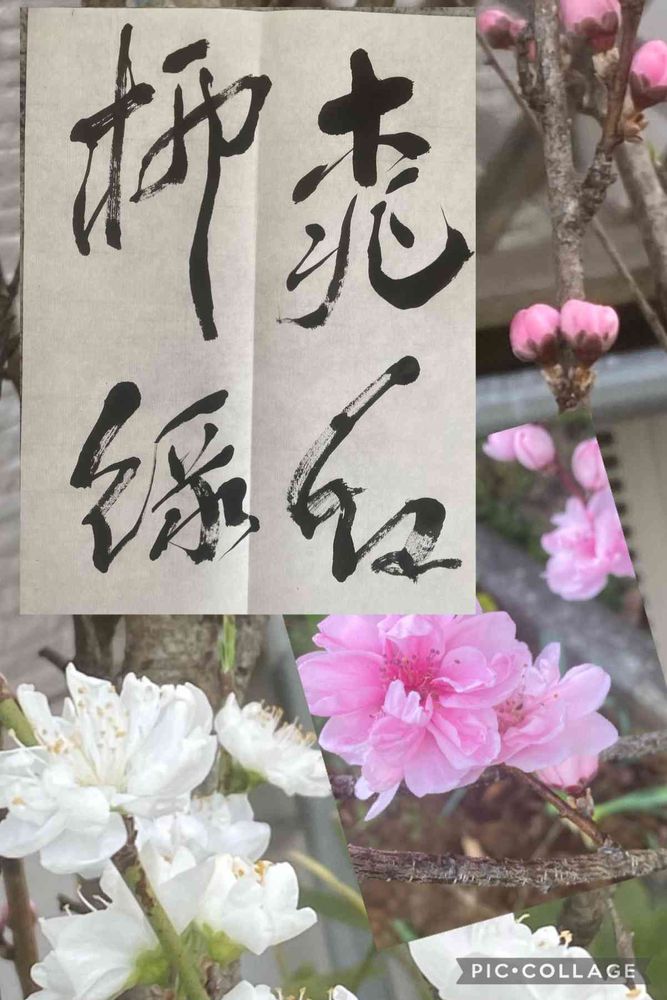 桃红
柳緑
PIC•COLLAGE